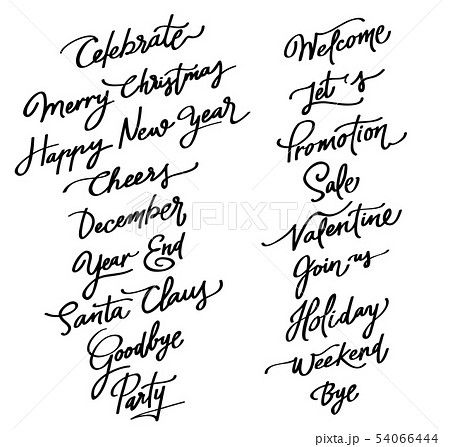 Celebrate
Merry Christmas
Happy New Year
Cheers
December
Year End
Santa Claus
Goodbye
Party
Welcome
Let's
Promotion
Sale
Valentine
Join us
Holiday
Weekend
Bye
PIXTA
pixta.jp - 54066444